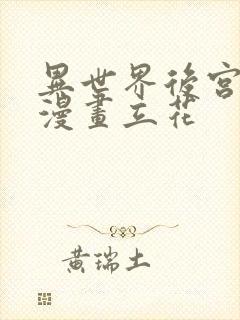 異世界後宮
漫畫立花
黃瑞土